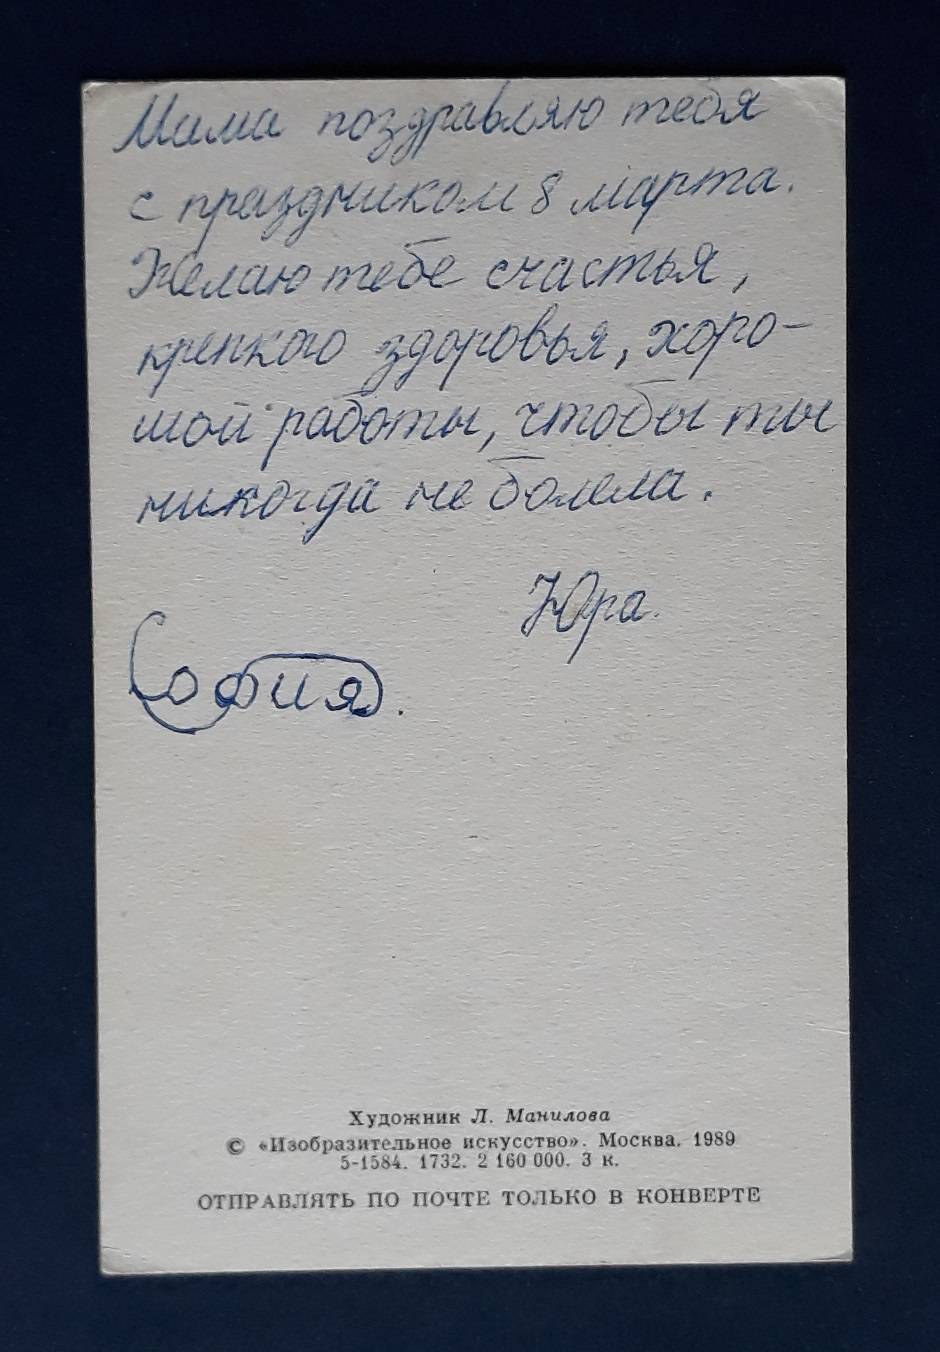 Мама поздравляю тебя
с праздником 8 марта.
Желаю тебе счастья,
крепкого здоровья, хоро-
шой работы, чтобы ты
никогда не болела.
Юра.
София.
Художник Л. Манилова
© «Изобразительное искусство». Москва. 1989
5-1584. 1732. 2 160 000. 3 к.
ОТПРАВЛЯТЬ ПО ПОЧТЕ ТОЛЬКО В КОНВЕРТЕ